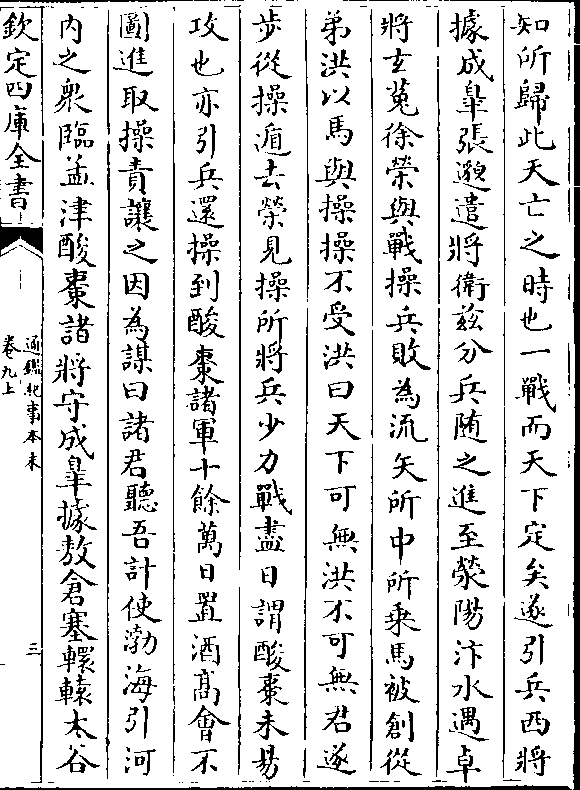 知所歸此天亡之時也一戰而天下定矣遂引兵西將
據成臯張邈遣將衛兹分兵随之進至滎陽汴水遇卓
將玄菟徐榮與戰操兵敗為流矢所中所乗馬被創從
弟洪以馬與操操不受洪曰天下可無洪不可無君遂
步從操遁去榮見操所將兵少力戰盡日謂酸棗未易
攻也亦引兵還操到酸棗諸軍十餘萬日置酒髙會不
圖進取操責讓之因為謀曰諸君聽吾計使渤海引河
内之衆臨孟津酸棗諸將守成臯據敖倉塞轘轅太谷
欽定四庫全書
通鑑紀事本末
卷九上
三